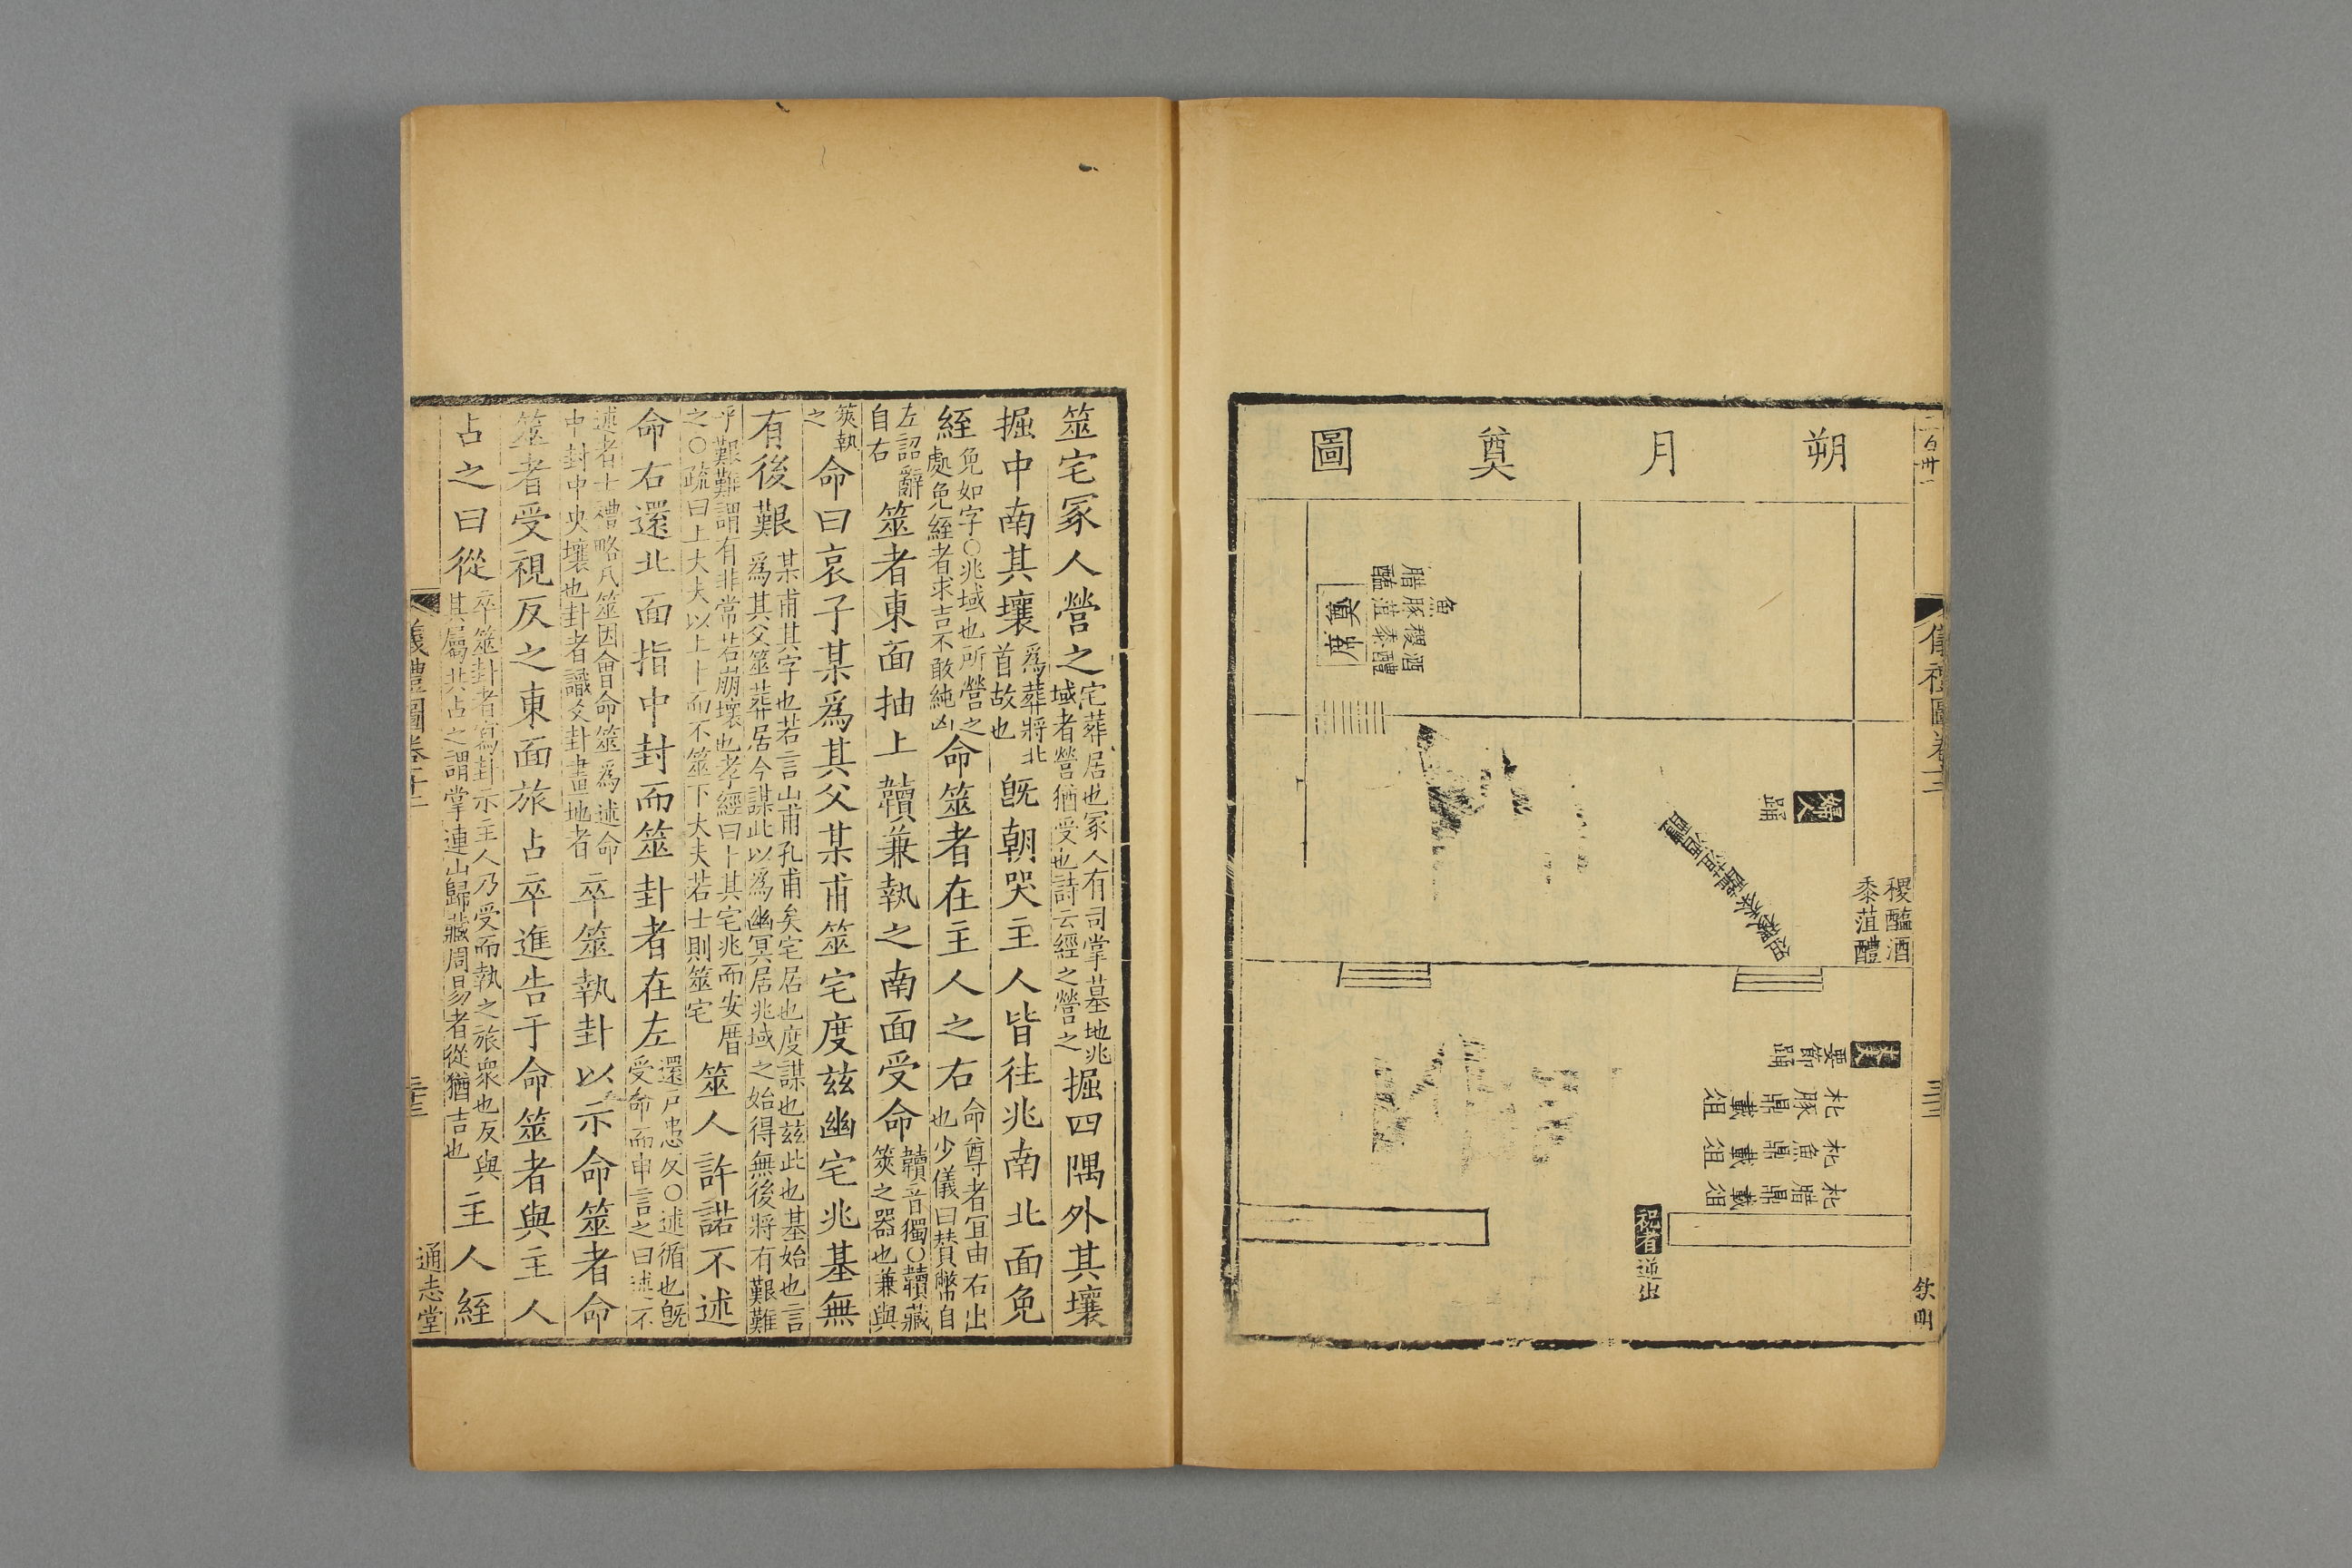 朔月奠圖
魚
腊豚稷酒
醢菹黍醴
奠席
婦人
踊
稷醢酒
黍菹醴
丈夫
要節踊
朼豚鼎載俎
朼魚鼎載俎
朼腊鼎載俎
祝者逆出
儀禮圖卷十二
欽明
筮宅冢人營之宅葬居也冢人有司掌墓地兆域者營猶受也詩云經之營之掘四隅外其壤
掘中南其壤爲葬將北首故也旣朝哭主人皆往兆南北面免
絰免如字〇兆域也所營之處免絰者求吉不敢純凶命筮者在主人之右命尊者宜由右出也少儀曰賛幣自
左詔辭自右筮者東面抽上韇兼執之南面受命韇音獨〇韇藏筴之器也兼與
筴執之命曰哀子某爲其父某甫筮宅度兹幽宅兆基無
有後艱某甫其字也若言山甫孔甫矣宅居也度謀也兹此也基始也言爲其父筮葬居今謀此以爲幽冥居兆域之始得無後將有艱難
乎艱難謂有非常若崩壞也孝經曰卜其宅兆而安厝之〇疏曰上大夫以上卜而不筮下大夫若士則筮宅筮人許諾不述
命右還北面指中封而筮卦者在左還戸患反〇述循也旣受命而申言之曰述不
述者士禮略凡筮因會命筮爲述命中封中央壤也卦者識爻卦畫地者卒筮執卦以示命筮者命
筮者受視反之東面旅占卒進告于命筮者與主人
占之曰從卒筮卦者寫卦示主人乃受而執之旅衆也反與其屬共占之謂掌連山歸藏周易者從猶吉也主人絰
儀禮圖卷十二
三十三
通志堂